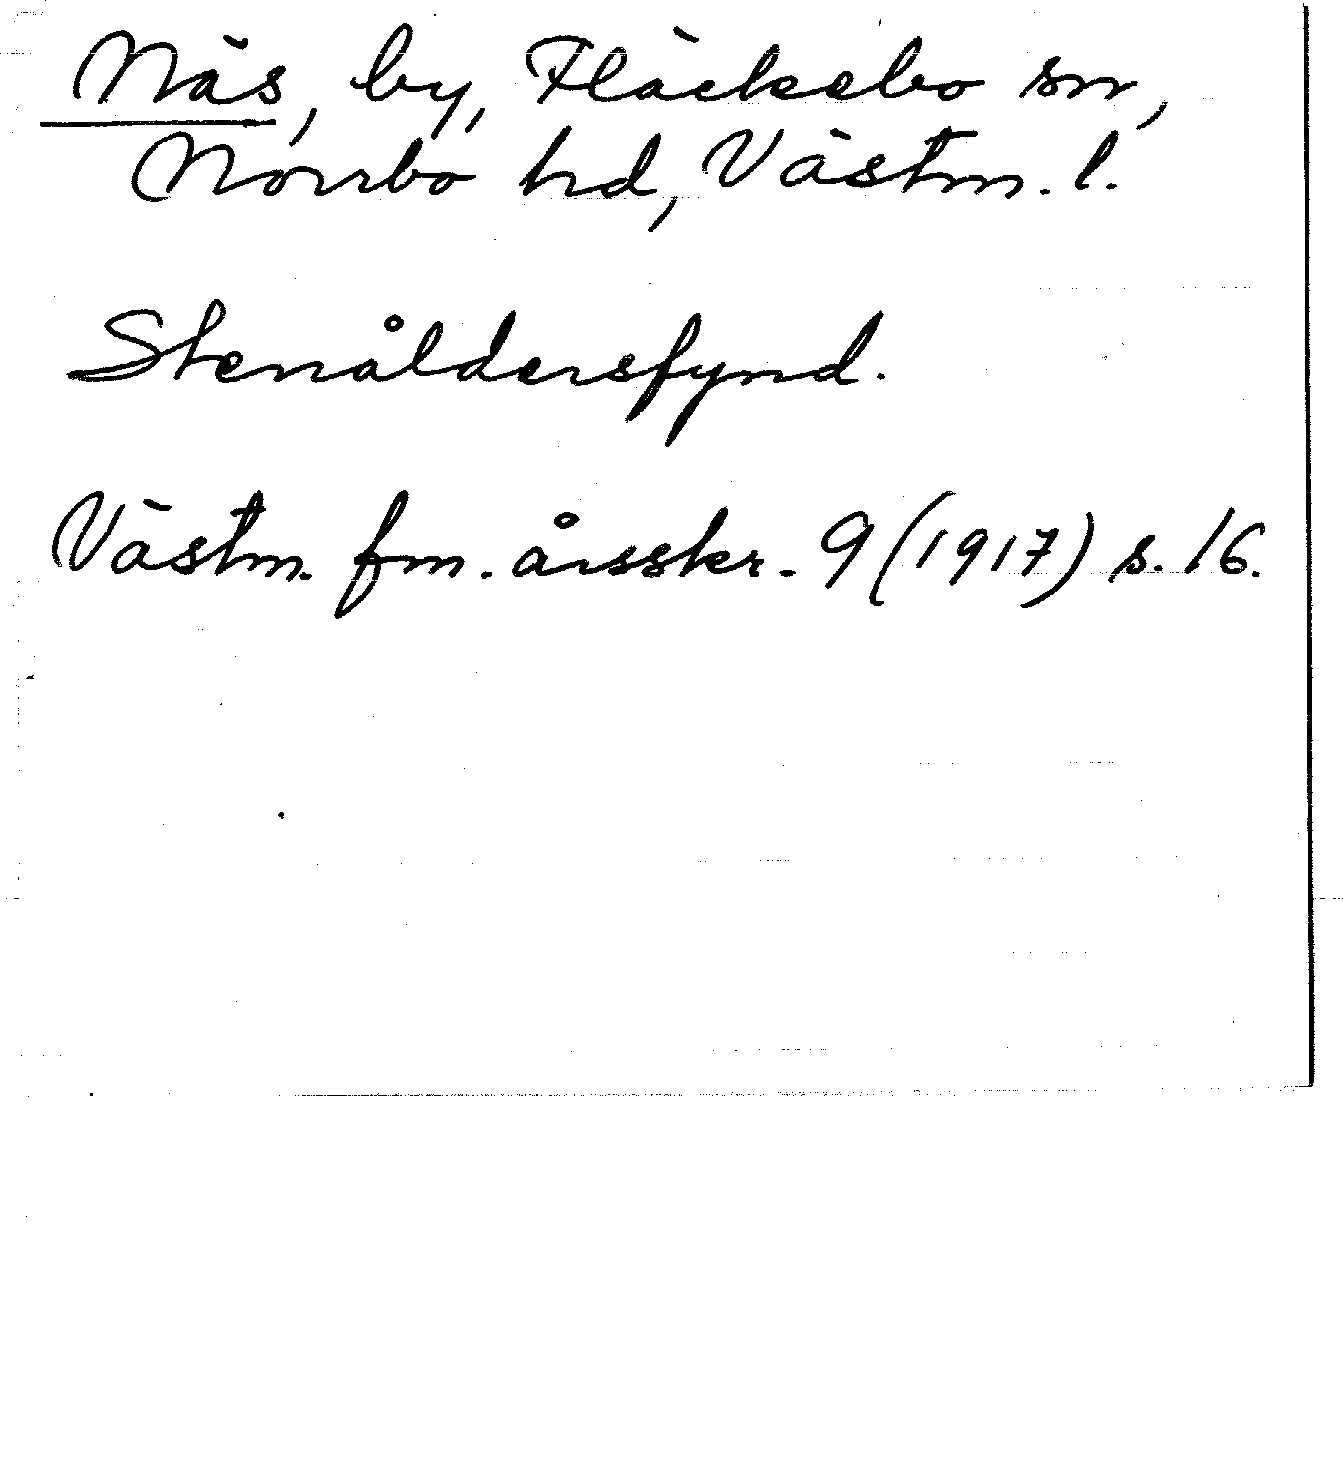 Näs, by, Fläckebo sn,
Norrbo hd, Västm. l.
Stenåldersfynd.
Västm. fm. årsskr. 9 (1917) s. 16.